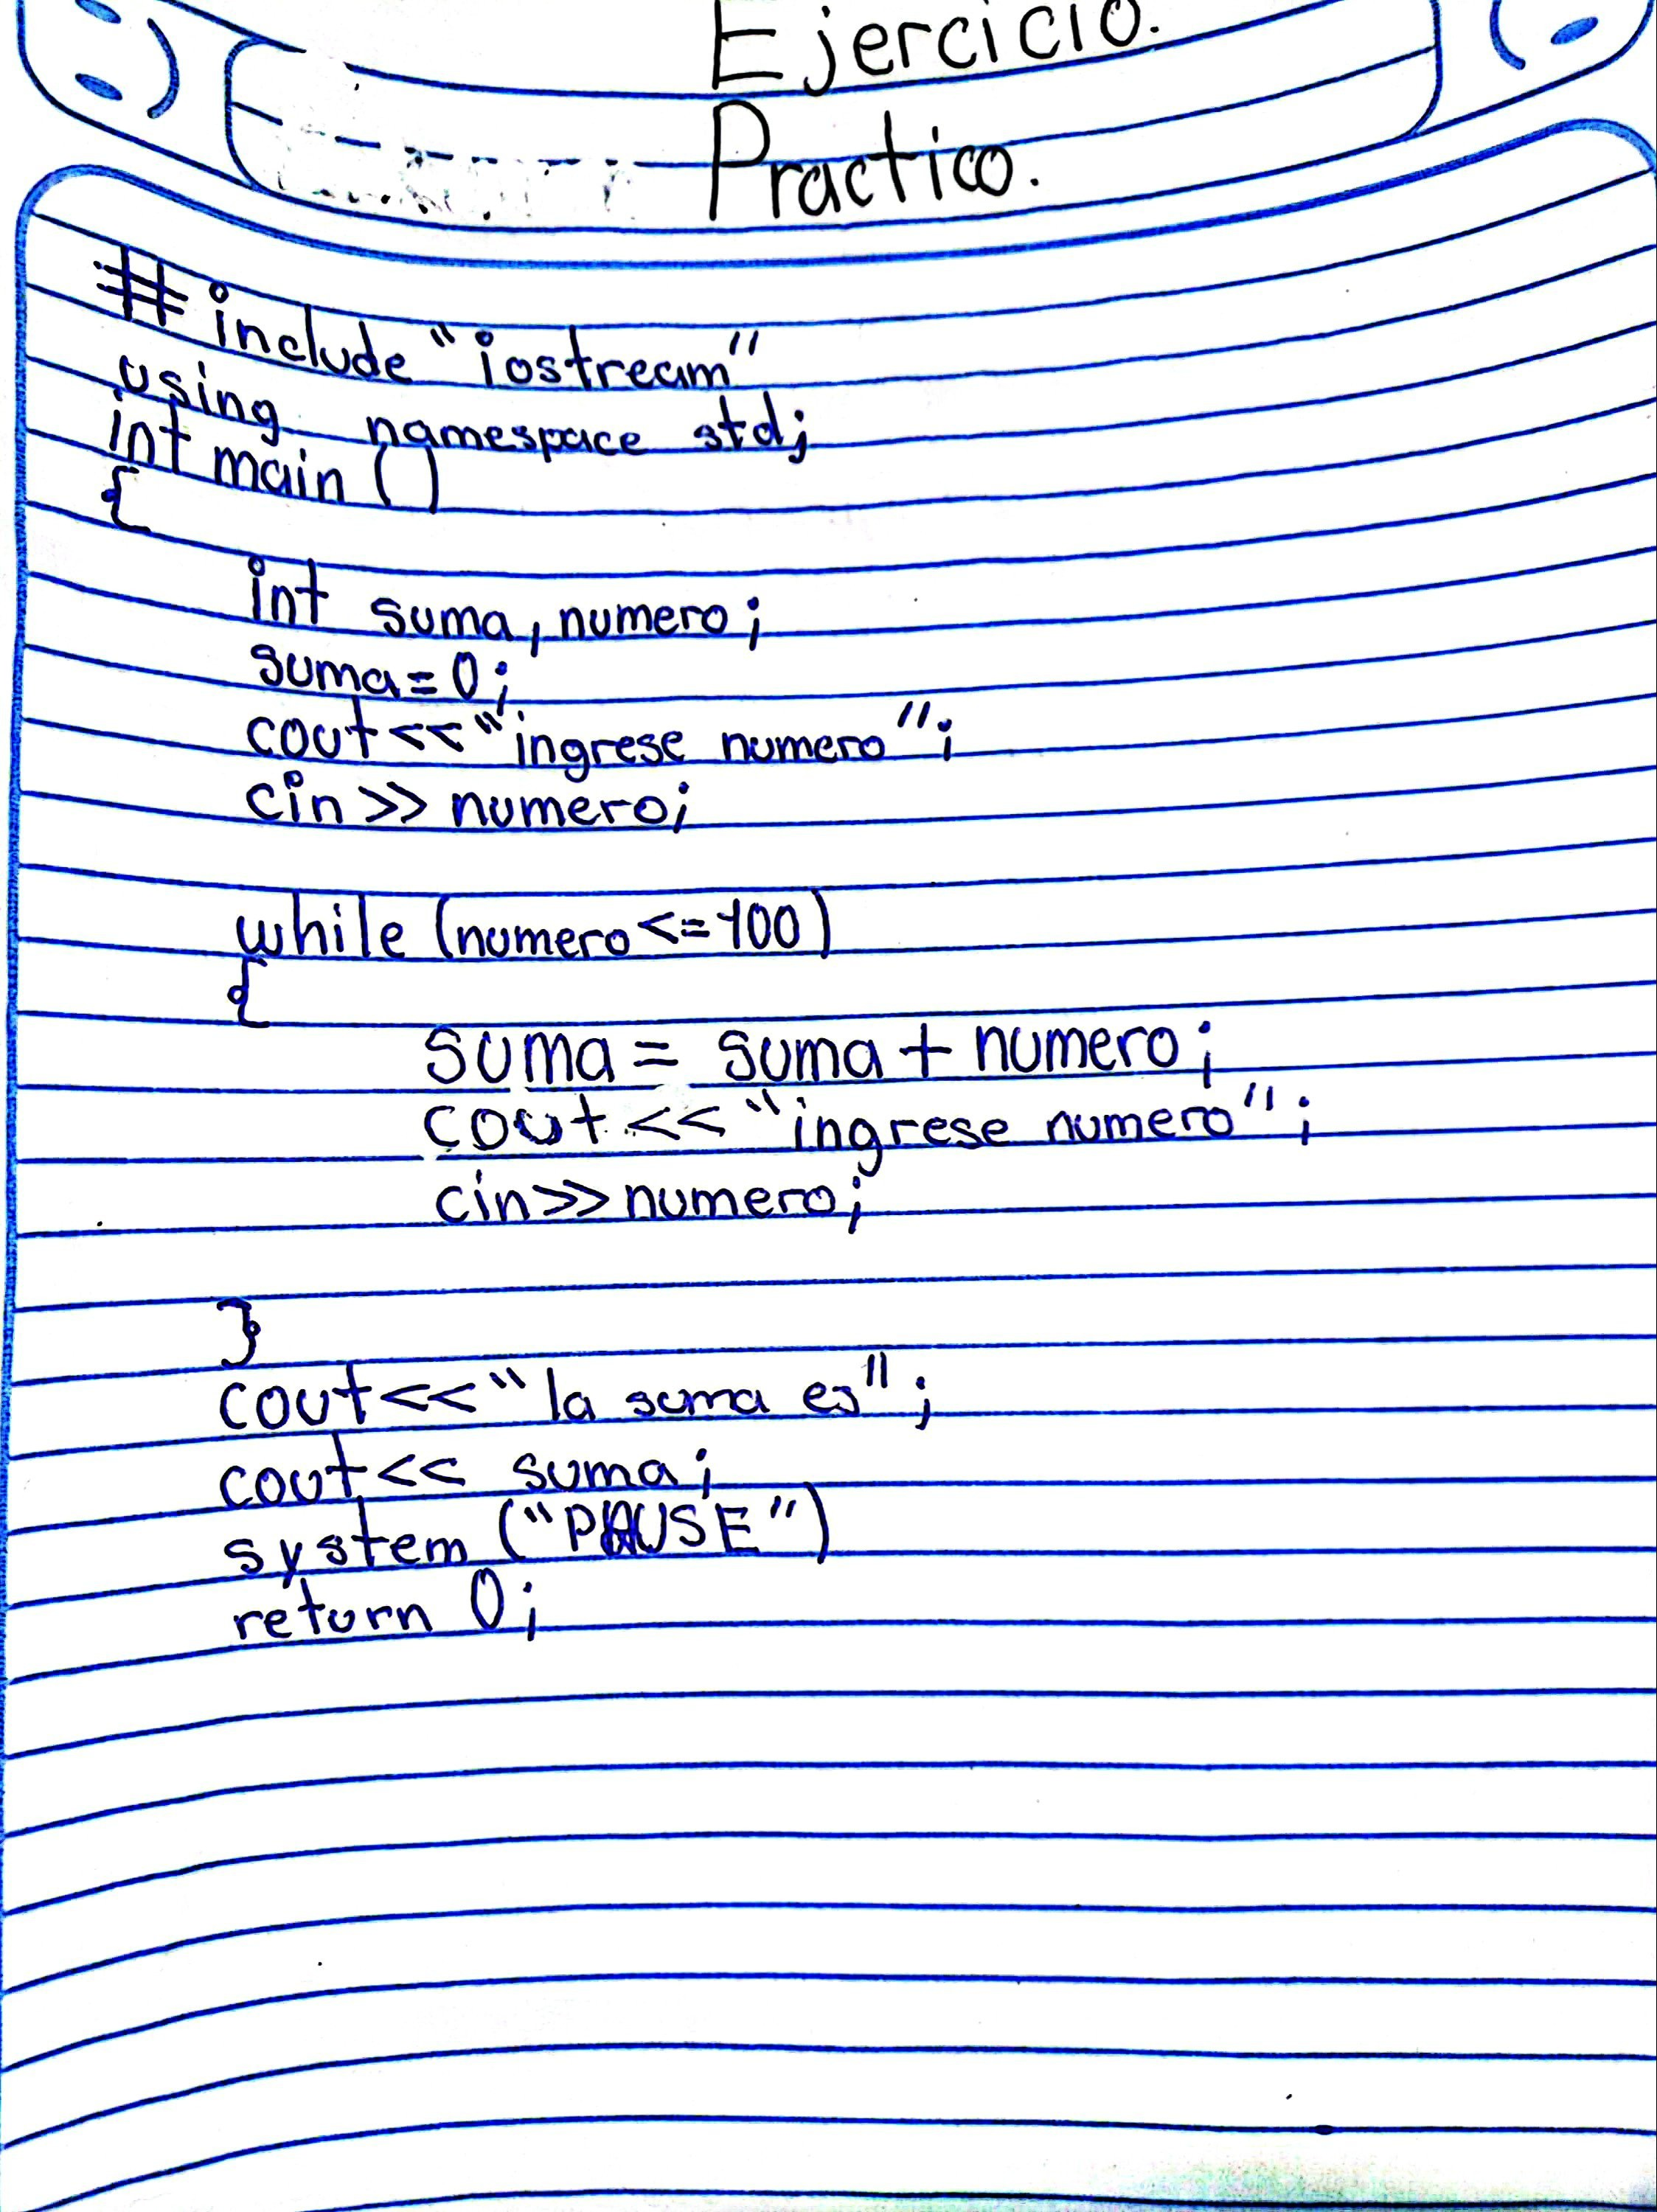 Ejercicio.
Practico.
# include "iostream"
using namespace std;
int main ()
{
int suma, numero;
suma = 0;
cout << "ingrese numero";
cin >> numero;
while (numero <= 100)
{
suma = suma + numero;
cout << "ingrese numero";
cin >> numero;
}
cout << "la suma es";
cout << suma;
system ("PAUSE")
return 0;